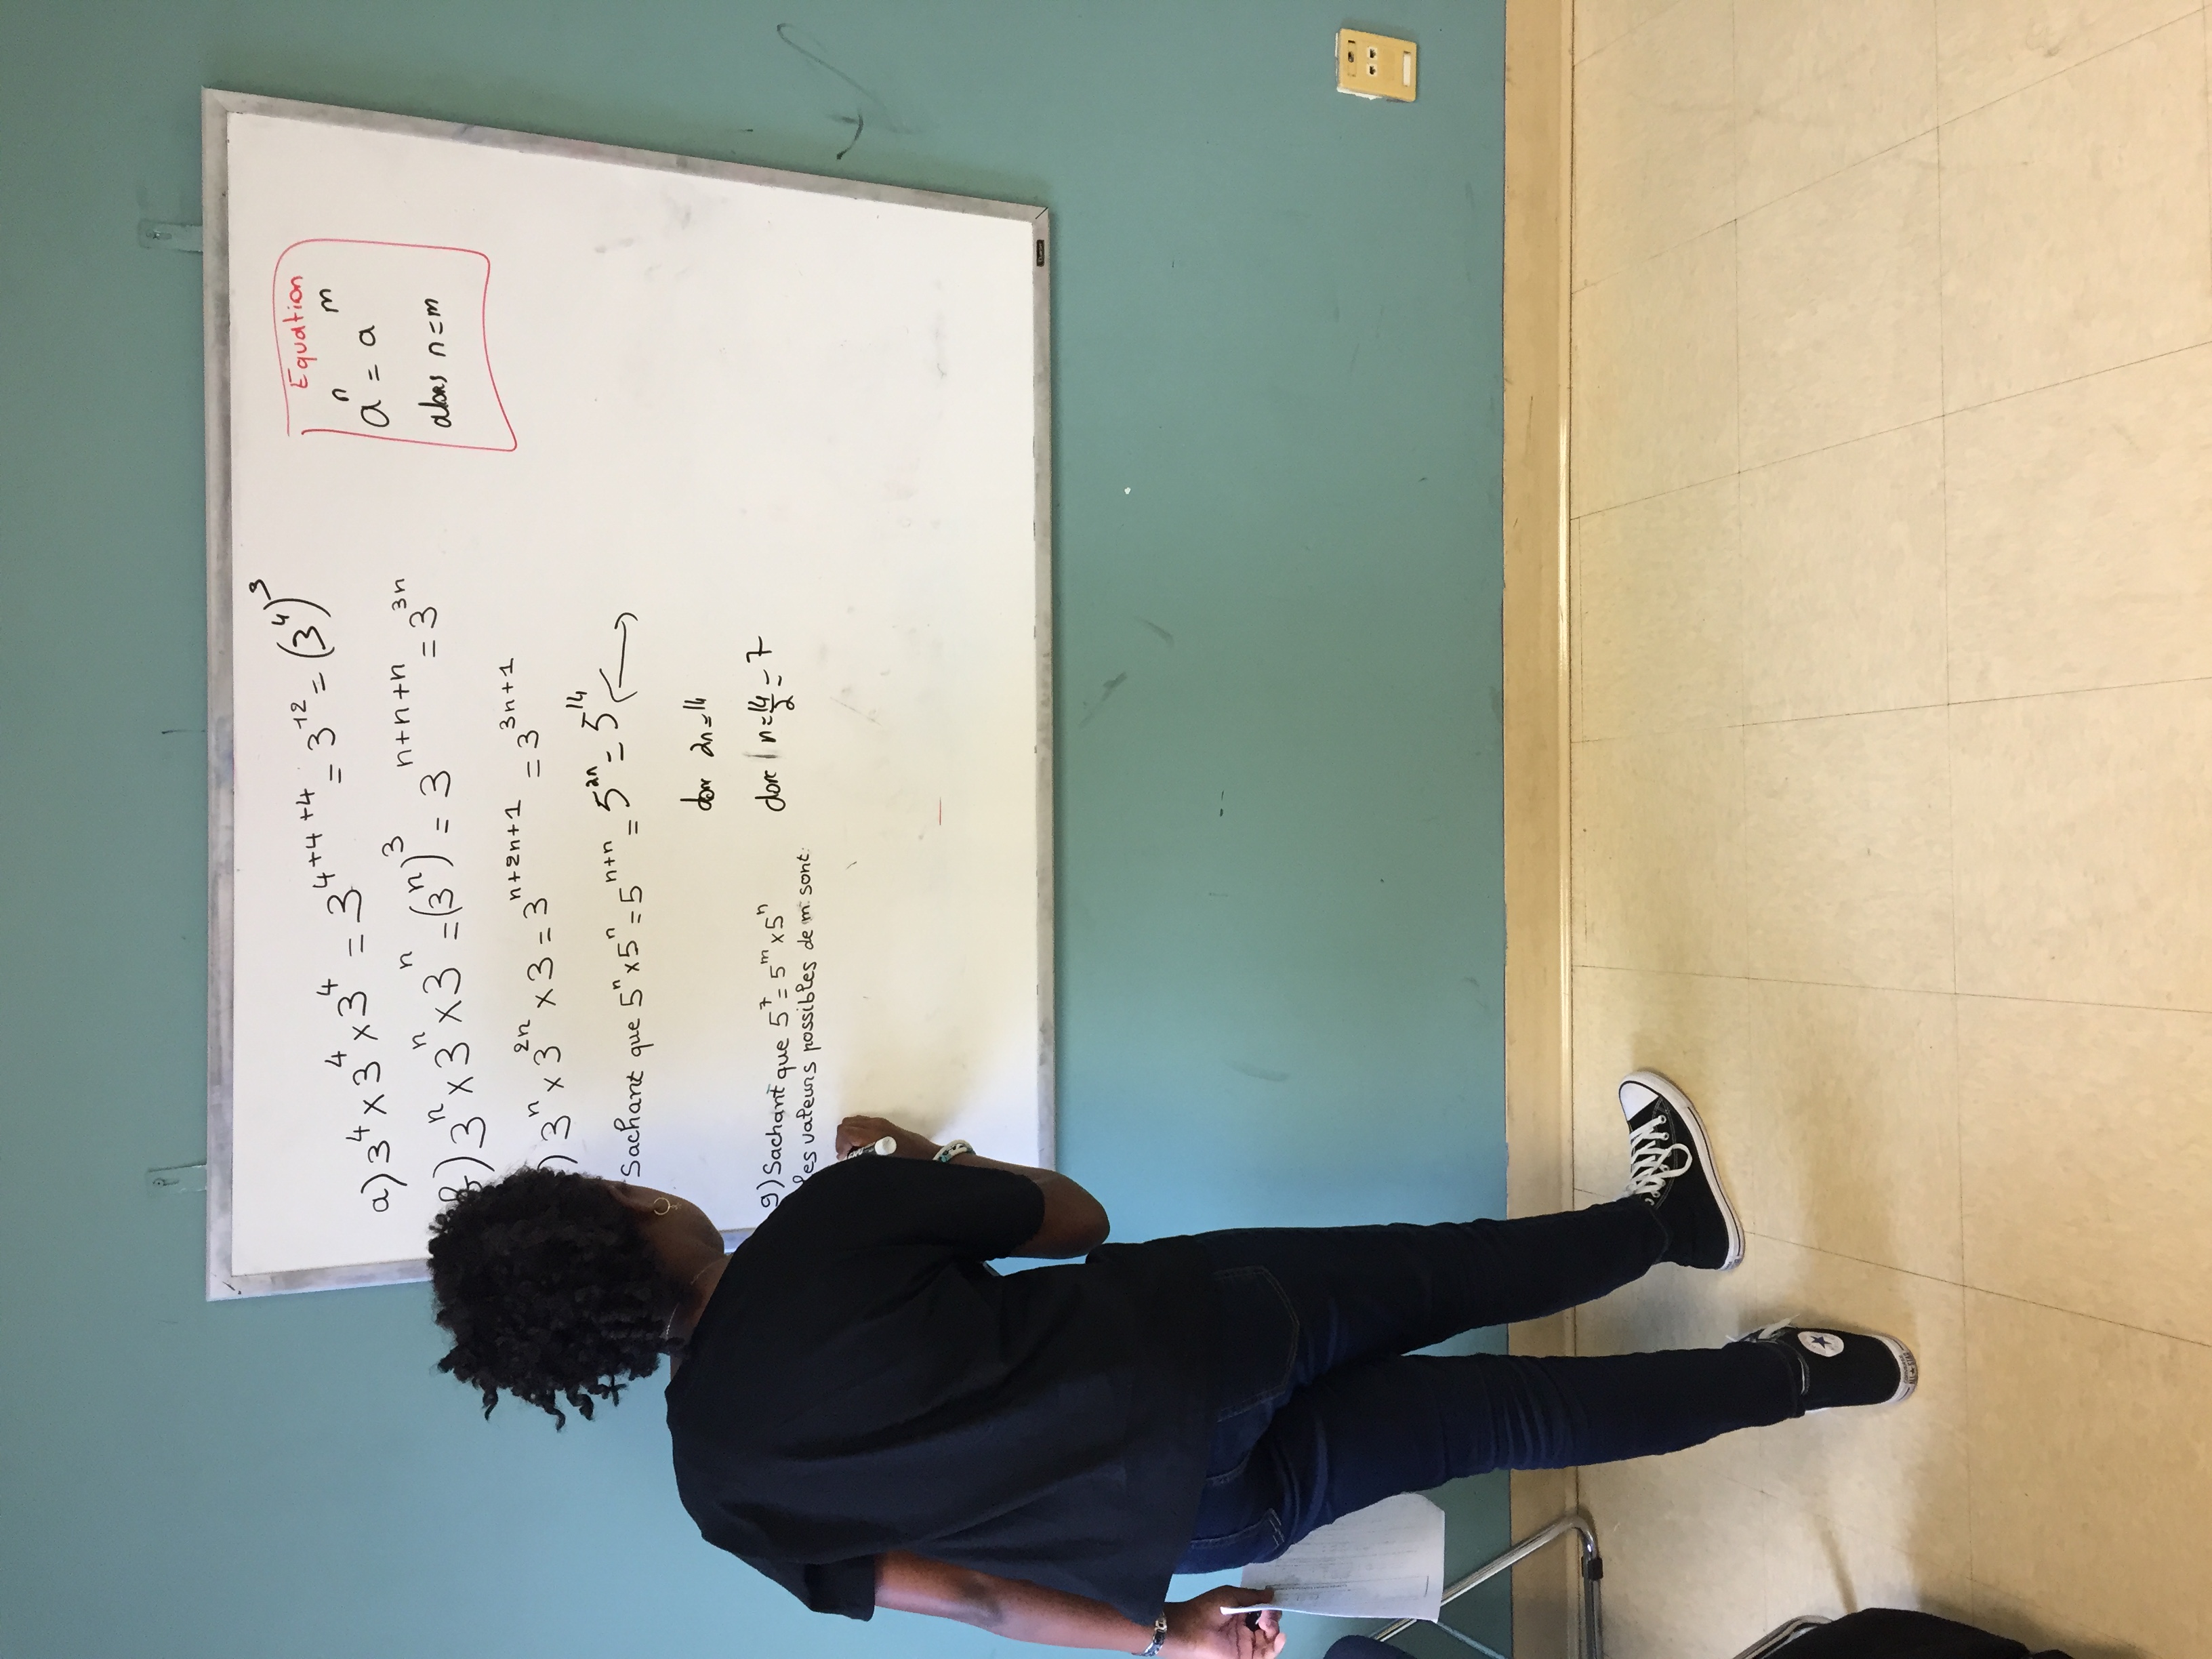 a) 3⁴ × 3⁴ × 3⁴ = 3⁴⁺⁴⁺⁴ = 3¹² = (3⁴)³
) 3ⁿ × 3ⁿ × 3ⁿ = (3ⁿ)³ = 3ⁿ⁺ⁿ⁺ⁿ = 3³ⁿ
) 3ⁿ × 3²ⁿ × 3 = 3ⁿ⁺²ⁿ⁺¹ = 3³ⁿ⁺¹
Sachant que 5ⁿ × 5ⁿ = 5ⁿ⁺ⁿ = 5²ⁿ = 5¹⁴
donc 2n = 14
donc n = 14/2 = 7
g) Sachant que 5⁷ = 5ᵐ × 5ⁿ
les valeurs possibles de m sont:
Equation
aⁿ = aᵐ
alors n = m